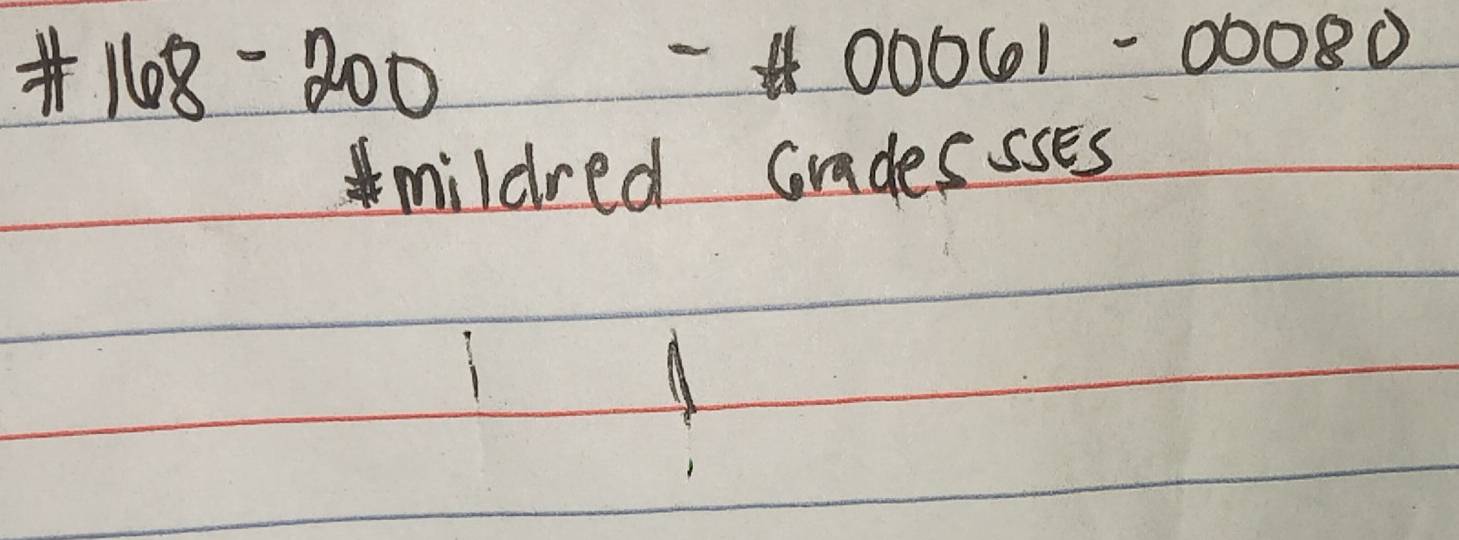 #168 - 200 - # 00061 - 00080
#mildred Grades SSES